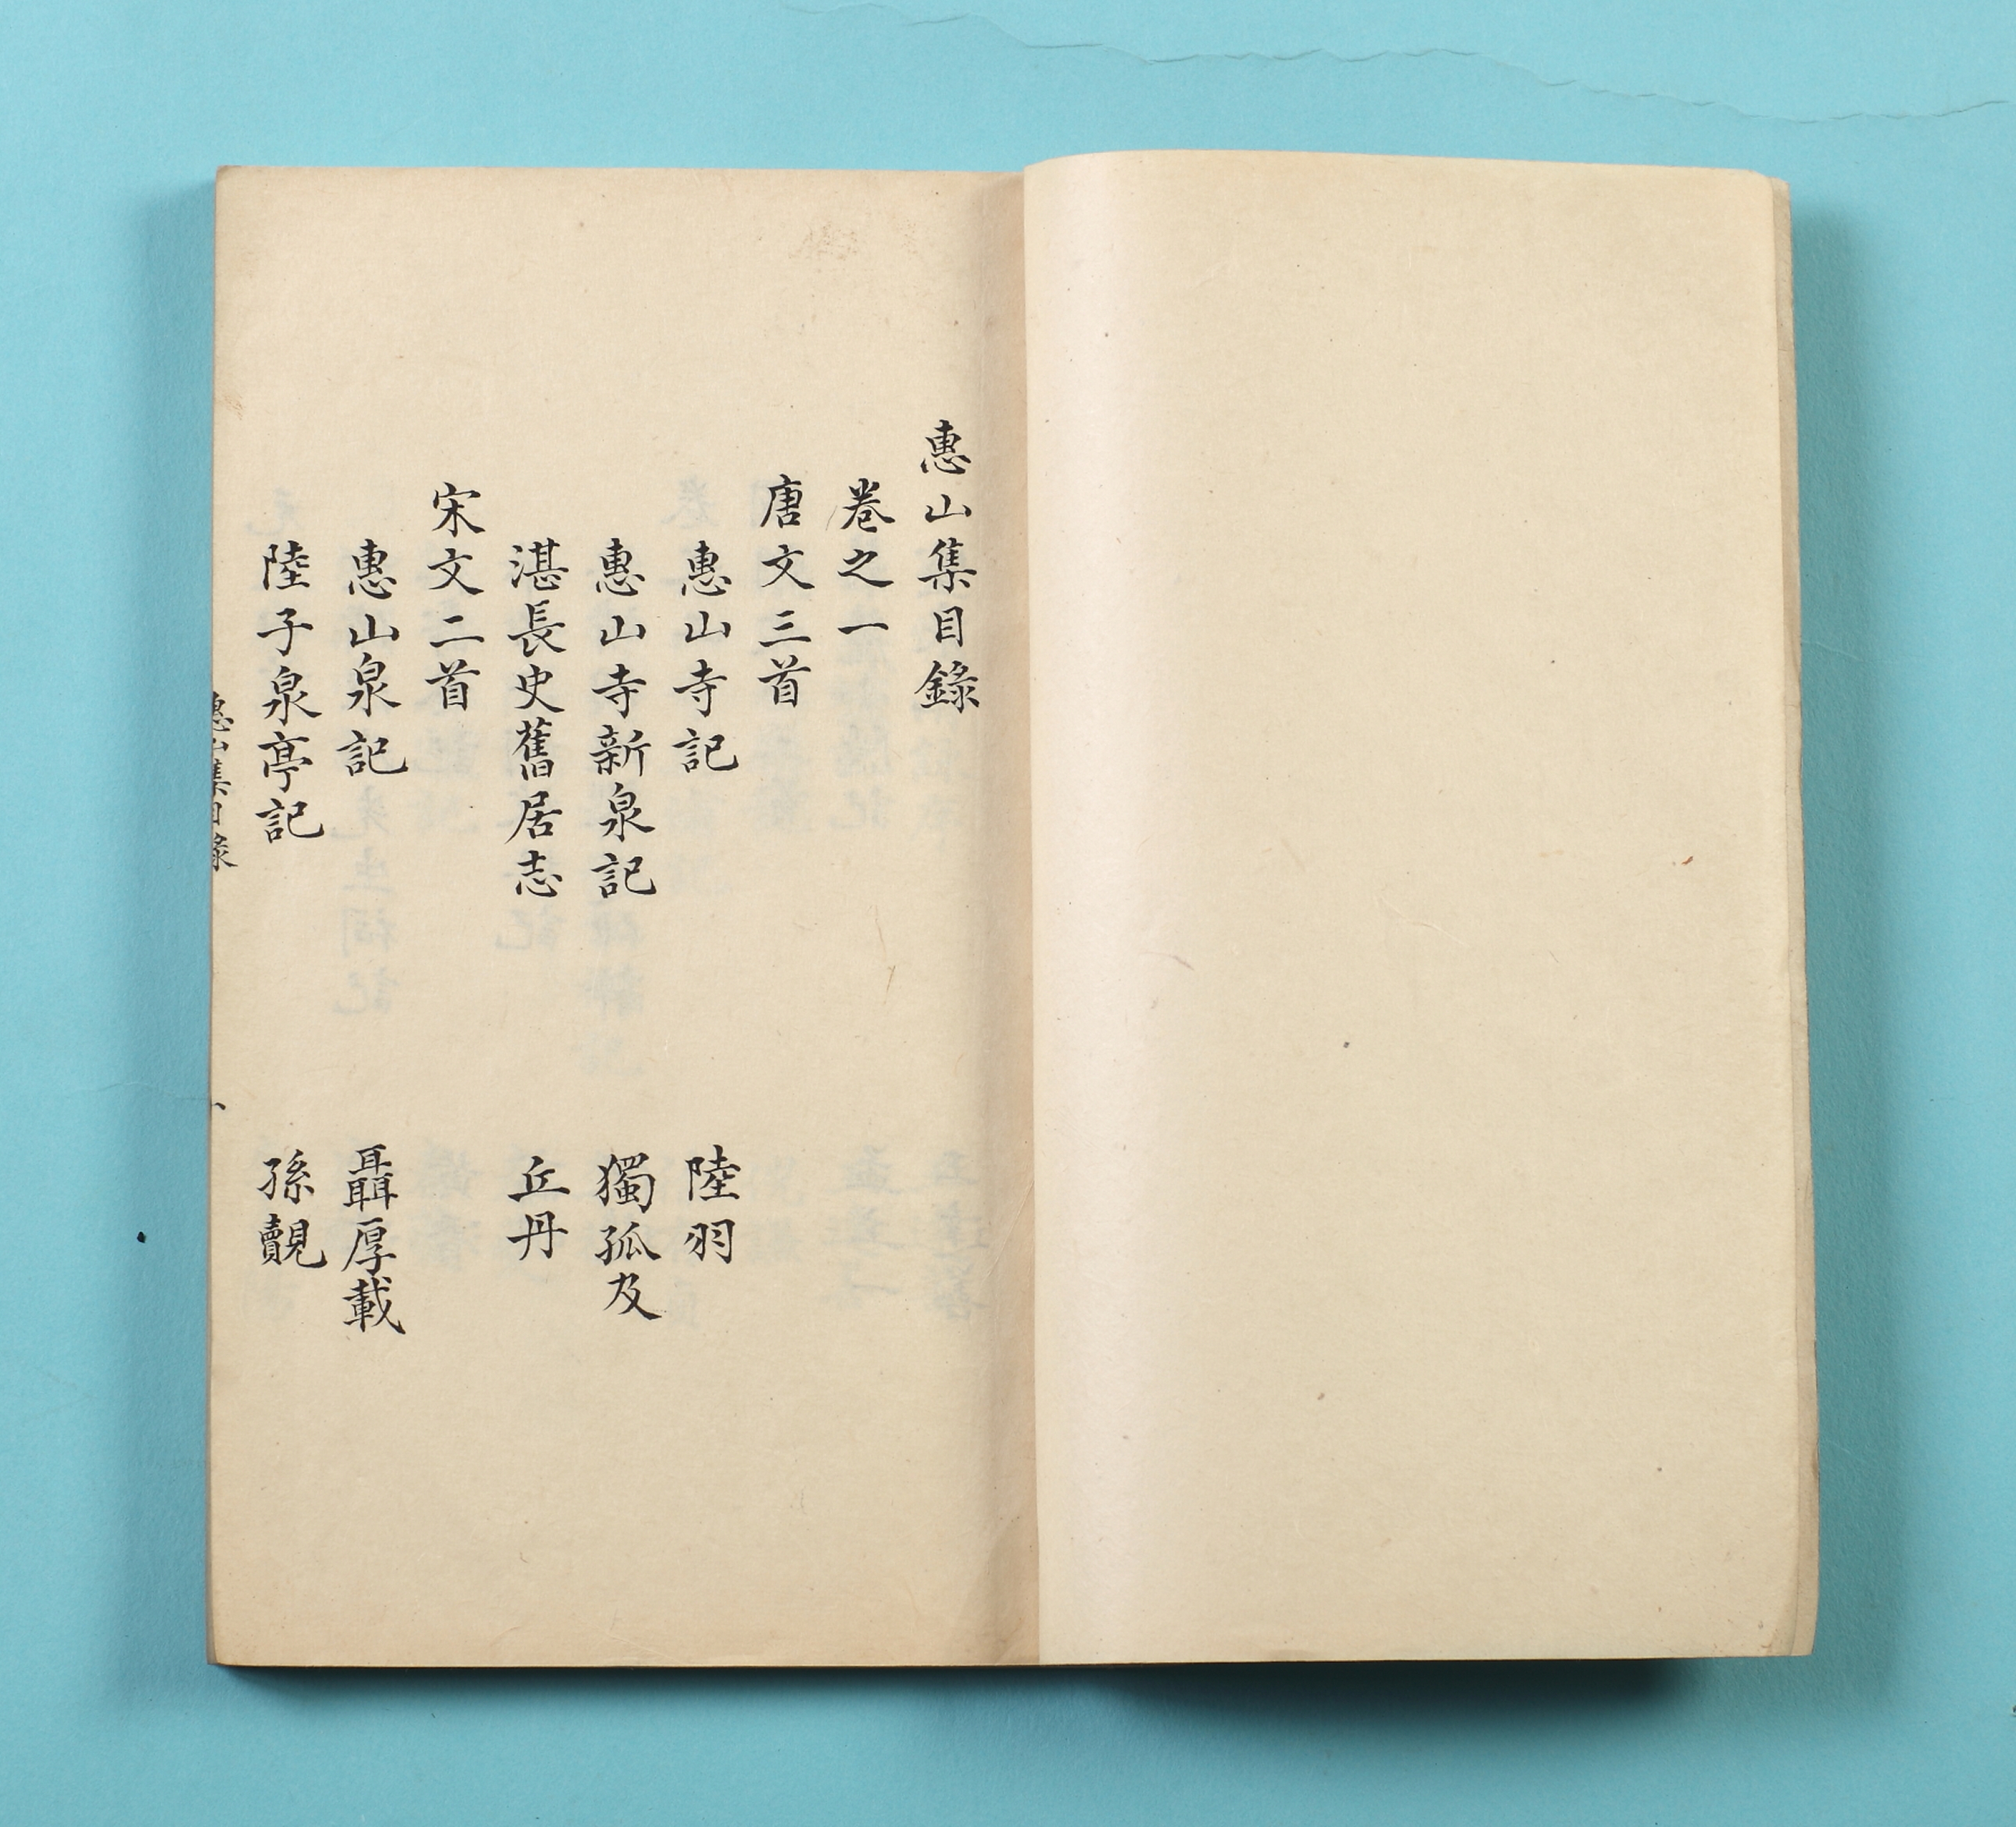 惠山集目錄
卷之一
唐文三首
惠山寺記 陸羽
惠山寺新泉記 獨孤及
湛長史舊居志 丘丹
宋文二首
惠山泉記 聶厚載
陸子泉亭記 孫覿
惠山集目錄 一